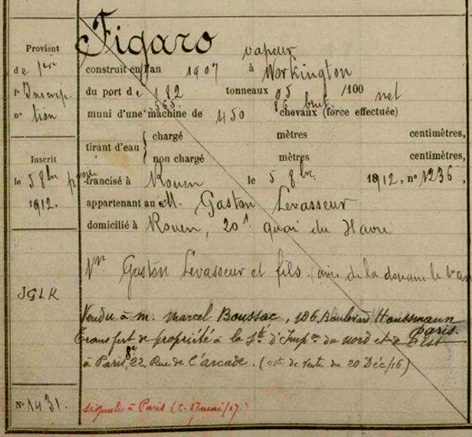 Figaro vapeur
Provient
de 1ère
Inscrip
n° tion
construit en l'an 1907 à Workington
du port de 182 tonneaux 05 /100 net
565 86 brut
muni d'une machine de 450 chevaux (force effectuée)
tirant d'eau { chargé mètres centimètres,
non chargé mètres centimètres,
Inscrit
le 5 8bre
1912.
francisé à Rouen le 5 8bre 1912, n° 1236.
appartenant au M. Gaston Levasseur
domicilié à Rouen, 20A quai du Havre
Mr Gaston Levasseur et fils de la douane
JGLK
Vendu à m. Marcel Boussac, 186 Boulevard Haussmann
Paris.
transfert de propriété à la Sté d'Impon du nord et de l'Est
à Paris 8e 22 Rue de l'arcade. (acte de vente du 20 Déc/16)
N° 1431.
signalé à Paris (C. 17 mai/17)